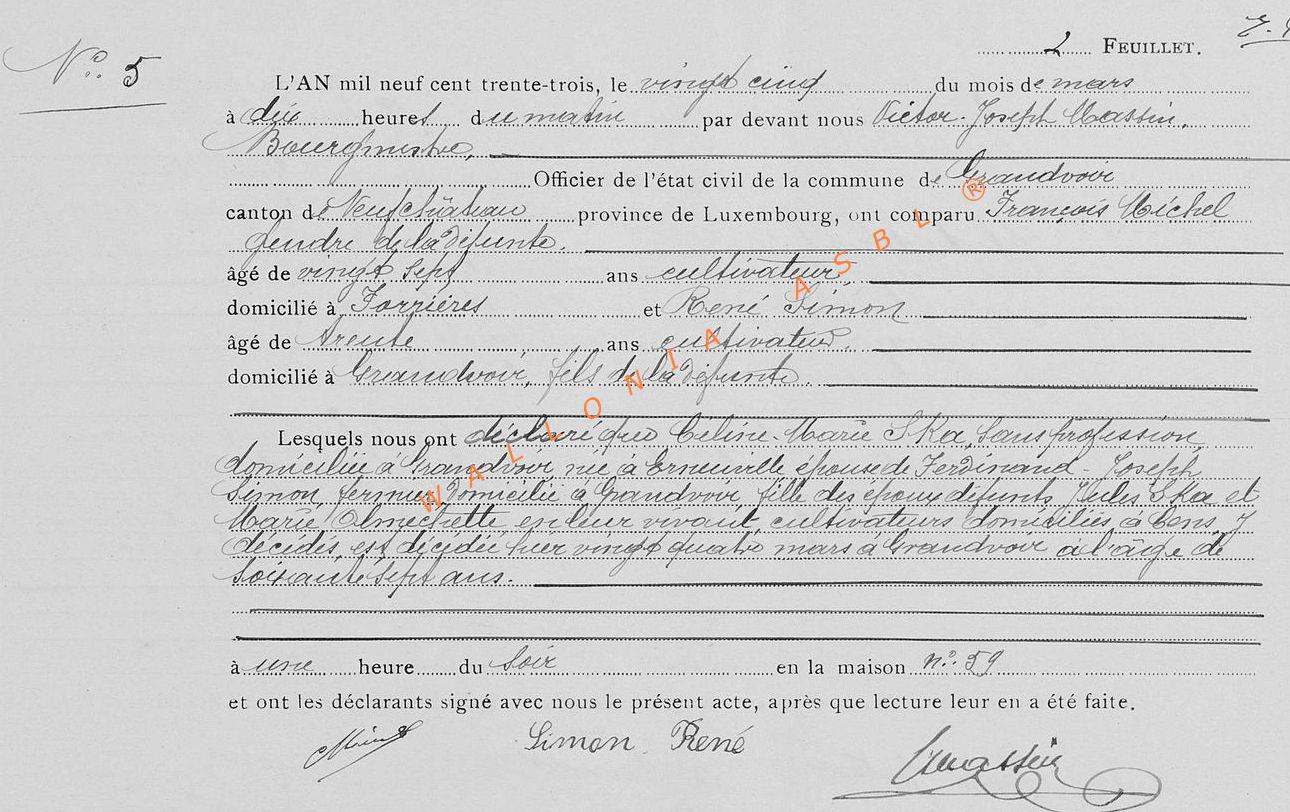 2 FEUILLET.
N° 5
L'AN mil neuf cent trente-trois, le vingt cinq du mois de mars
à dix heures du matin par devant nous Victor-Joseph Massin,
Bourgmestre,
Officier de l'état civil de la commune de Grandvoir
canton de Neufchâteau province de Luxembourg, ont comparu François Michel
gendre de la défunte.
âgé de vingt sept ans cultivateur,
domicilié à Forrières et René Simon
âgé de trente ans cultivateur,
domicilié à Grandvoir, fils de la défunte.
Lesquels nous ont déclaré que Céline-Marie Ska, sans profession
domiciliée à Grandvoir née à Erneuville épouse de Ferdinand-Joseph
Simon fermier domicilié à Grandvoir, fille des époux défunts Jules Ska et
Marie en leur vivant cultivateurs domiciliés à Cens y
décédés, est décédée hier vingt quatre mars à Grandvoir à l'âge de
soixante sept ans.
à une heure du soir en la maison n° 59
et ont les déclarants signé avec nous le présent acte, après que lecture leur en a été faite.
Simon René
Vmassin
WALLONIA ASBL ®